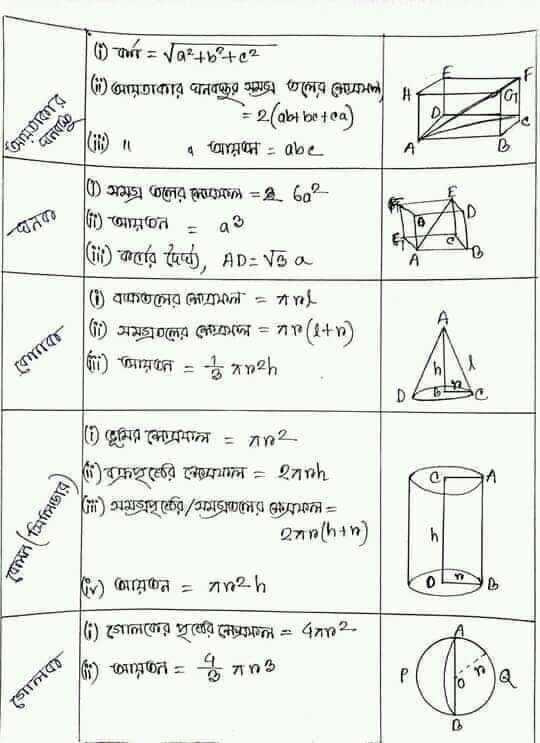 আয়তাকার ঘনবস্তু
(i) কর্ণ = √a²+b²+c²
(ii) আয়তাকার ঘনবস্তুর সমগ্র তলের ক্ষেত্রফল
= 2(ab+bc+ca)
(iii) " " আয়তন = abc
E F H G D C A B
ঘনক
(i) সমগ্র তলের ক্ষেত্রফল = 6a²
(ii) আয়তন = a³
(iii) কর্ণের দৈর্ঘ্য, AD = √3 a
E B D C A B
কোণক
(i) বক্রতলের ক্ষেত্রফল = πrl
(ii) সমগ্রতলের ক্ষেত্রফল = πr(l+r)
(iii) আয়তন = 1/3 πr²h
A
h l
D B r C
বেলন (সিলিন্ডার)
(i) ভূমির ক্ষেত্রফল = πr²
(ii) বক্রপৃষ্ঠের ক্ষেত্রফল = 2πrh
(iii) সমগ্রপৃষ্ঠের/সমগ্রতলের ক্ষেত্রফল =
2πr(h+r)
(iv) আয়তন = πr²h
C A
h
O r B
গোলক
(i) গোলকের পৃষ্ঠের ক্ষেত্রফল = 4πr²
(ii) আয়তন = 4/3 πr³
A
P O r Q
B